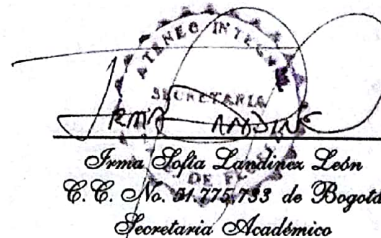 ATENEO INTEGRAL
SECRETARIA
Irma Sofía Landinez León
C.C. No. 51.775.733 de Bogotá
Secretaria Académico